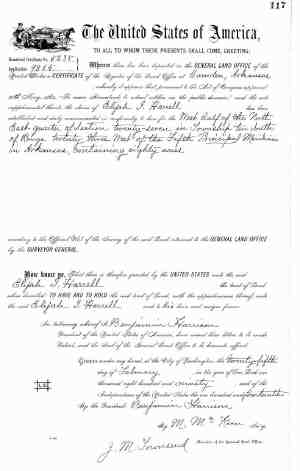 117
The United States of America,
TO ALL TO WHOM THESE PRESENTS SHALL COME, GREETING:
Homestead Certificate No.
Application 9865
Whereas there has been deposited in the GENERAL LAND OFFICE of the
United States a CERTIFICATE of the Register of the Land Office at Camden, Arkansas
, whereby it appears that, pursuant to the Act of Congress approved
20th May, 1862, "To secure Homesteads to actual settlers on the public domain," and the acts
supplemental thereto, the claim of Elijah T. Harrell has been
established and duly consummated in conformity to law for the West half of the North
East quarter of Section twenty-seven in Township ten South
of Range twenty three West of the Fifth Principal Meridian
in Arkansas, containing eighty acres
according to the Official Plat of the Survey of the said Land returned to the GENERAL LAND OFFICE
by the SURVEYOR GENERAL.
Now know ye, That there is therefore granted by the UNITED STATES unto the said
Elijah T. Harrell the tract of Land
above described: TO HAVE AND TO HOLD the said tract of Land, with the appurtenances thereof, unto
the said Elijah T. Harrell and to his heirs and assigns forever.
In testimony whereof I, Benjamin Harrison
President of the United States of America, have caused these letters to be made
Patent, and the seal of the General Land Office to be hereunto affixed.
Given under my hand, at the City of Washington, the twenty fifth
day of February, in the year of Our Lord one
thousand eight hundred and ninety, and of the
Independence of the United States the one hundred and fourteenth
By the President: Benjamin Harrison
By M. McKean Sec'y.
J. M. Townsend Recorder of the General Land Office